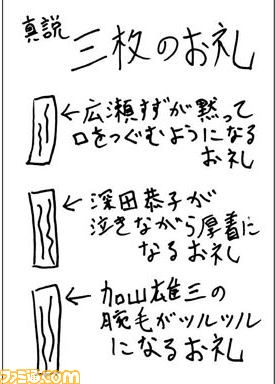 真説
三枚のお札
←広瀬すずが黙って
口をつぐむようになる
お礼
←深田恭子が
泣きながら厚着に
なるお礼
←加山雄三の
腕毛がツルツル
になるお礼
ファミ通.com